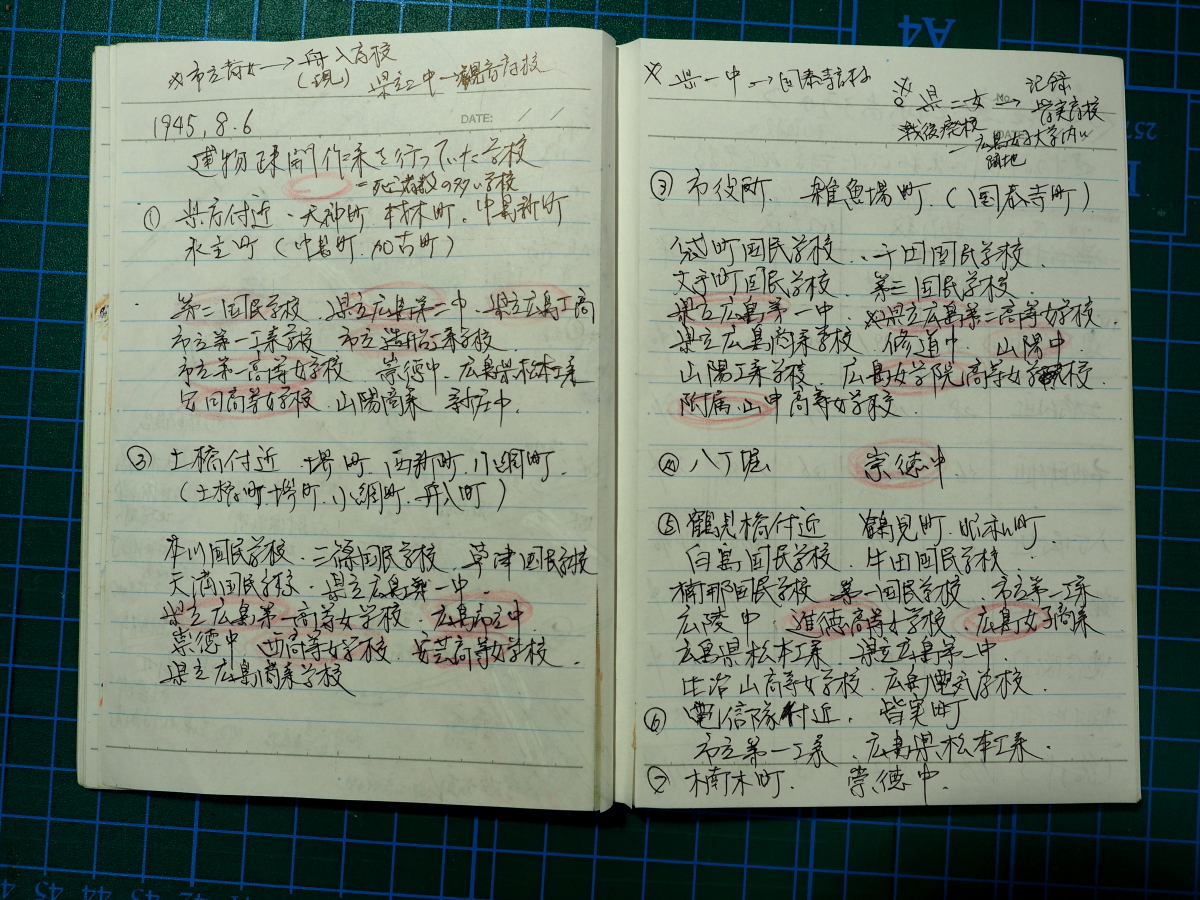 ※市立高女→舟入高校
(現) 県立二中ー観音高校
1945. 8. 6
DATE: / /
建物疎開作業を行っていた学校
=死者数の多い学校
① 県庁付近・天神町.材木町.中島新町
水主町(中島町.加古町)
第二国民学校.県立広島第二中.県立広島工商
市立第一工業学校 市立造船工業学校
市立第一高等女学校 崇徳中.広島県松本工業
安田高等女学校.山陽商業 新庄中.
③ 土橋付近 堺町.西新町.小網町.
(土橋町.堺町.小網町.舟入町)
本川国民学校.三篠国民学校.草津国民学校
天満国民学校.県立広島第一中.
県立広島第一高等女学校.広島市立中
崇徳中 西高等女学校.安芸高等女学校.
県立広島商業学校
※ 県一中→国泰寺高校
※ 県二女→皆実高校
記録
戦後廃校
広島女子大学内
跡地
③ 市役所 雑魚場町.(国泰寺町)
袋町国民学校..千田国民学校.
大手町国民学校.第三国民学校.
県立広島第一中.※県立広島第二高等女学校.
県立広島商業学校 修道中.山陽中.
山陽工業学校.広島女学院高等女学校.
附属.山中高等女学校.
④ 八丁堀 崇徳中.
⑤ 鶴見橋付近 鶴見町.昭和町.
白島国民学校.牛田国民学校.
楠那国民学校.第一国民学校.市立第一工業
広陵中.進徳高等女学校.広島女子商業
広島県松本工業.県立広島第一中.
比治山高等女学校.広島電気学校.
⑥ 電信隊付近.皆実町
市立第一工業.広島県松本工業.
⑦ 楠木町.崇徳中.
A4